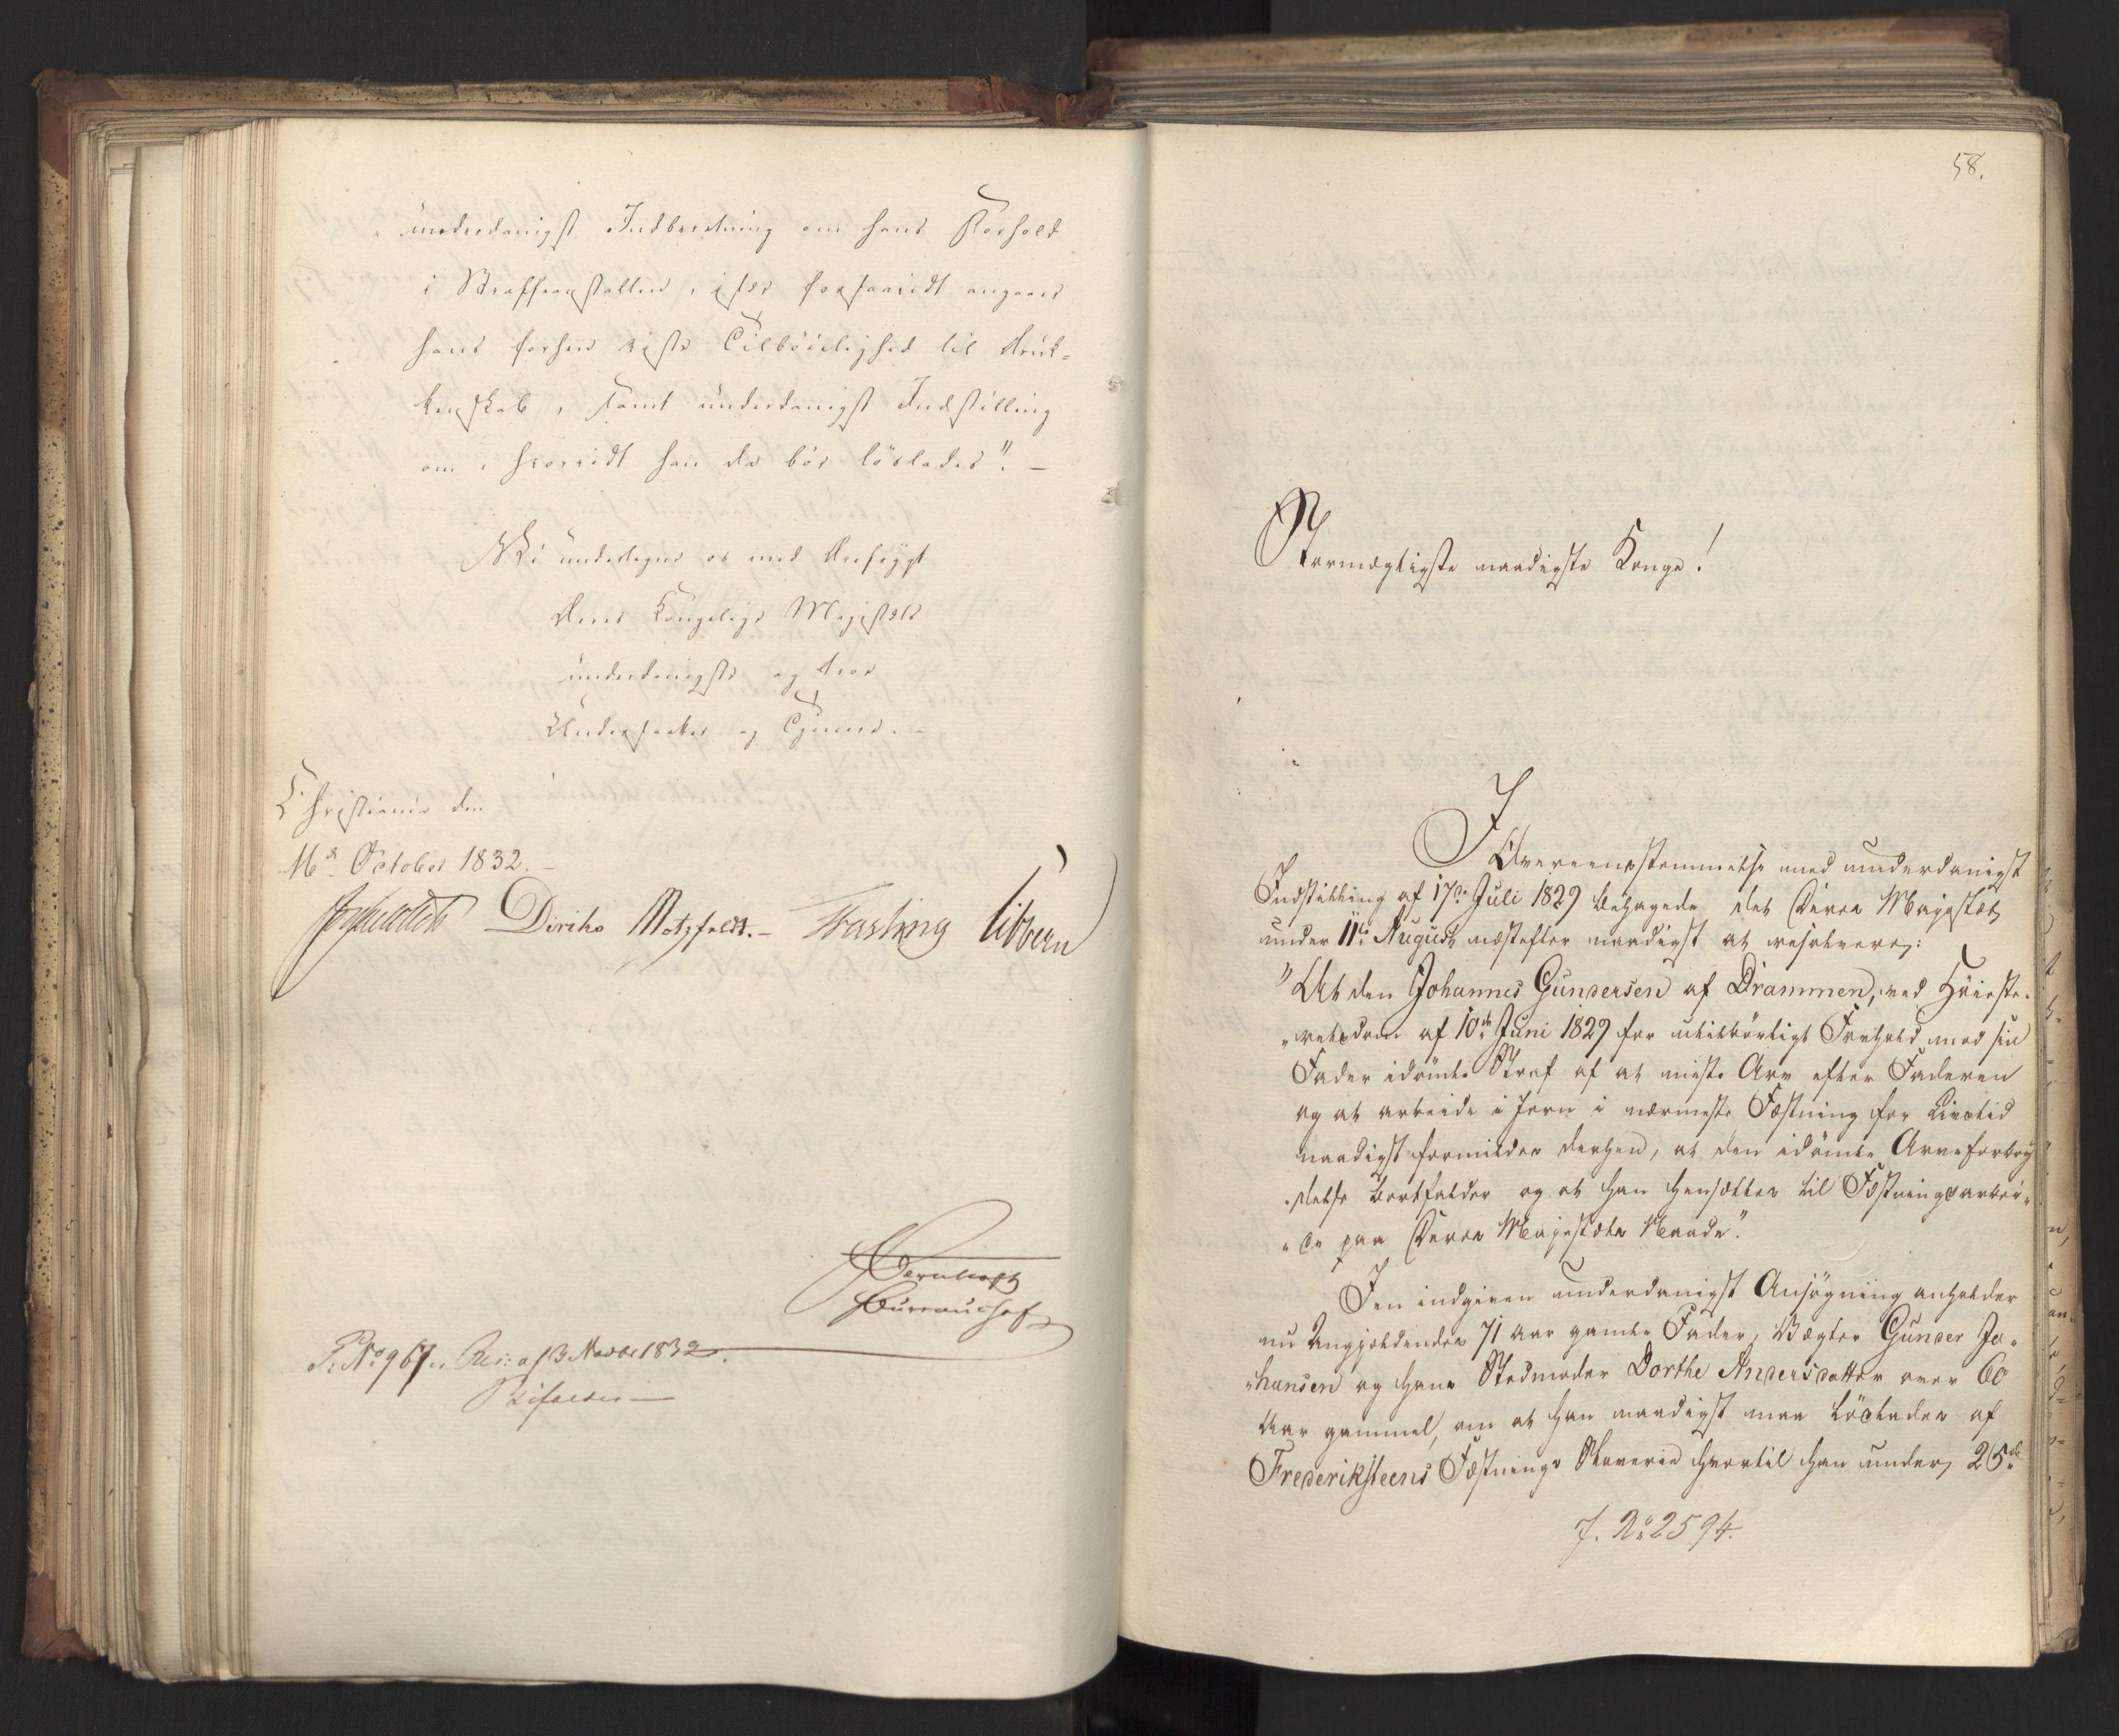 underdanigst Indberetning om hans Forhold
i Straffeanstalten, især forsaavidt angaaer
hans forhen viiste Tilböielighed til Druk-
kenskab, samt underdanigst Indstilling
om, hvorvidt han da bör löslades". —
Vi undertegne os med Ærefrygt
Deres Kongelige Majestæts
underdanigste og troe
Undersaatter og Tjenere. -
Christiania den
16de October 1832. -
Diriks Motzfeldt. - Fasting Sibbern
Bureauchef
P. No 967. Res: af 3 Novbr 1832.
Bifaldes —
58.
Stormægtigste naadigste Konge!
I Overeensstemmelse med underdanigst
Indstilling af 17de Juli 1829 behagede det Deres Majestæt
under 11te August næstefter naadigst at resolvere:
"At den Johannes Gundersen af Drammen, ved Höieste-
"retsdom af 10de Juni 1829 for utilbörligt Forhold mod sin
Fader idömte Straf af at miste Arv efter Faderen
og at arbeide i Jern i nærmeste Fæstning for Livstid
naadigst formildes derhen, at den idömte Arvefortry
"delse bortfalder og at han hensættes til Fæstningsarbei-
"de paa Deres Majestæts Naade".
I en indgiven underdanigst Ansögning anholder
nu Angjeldendes 71 Aar gamle Fader, Vægter Gunder Jo-
"hansen og hans Stedmoder Dorthe Andersdatter over 60
Aar gammel, om at han naadigst maa löslades af
Frederiksteens Fæstnings Slaverie hvortil han under 25de
J. No 2594.